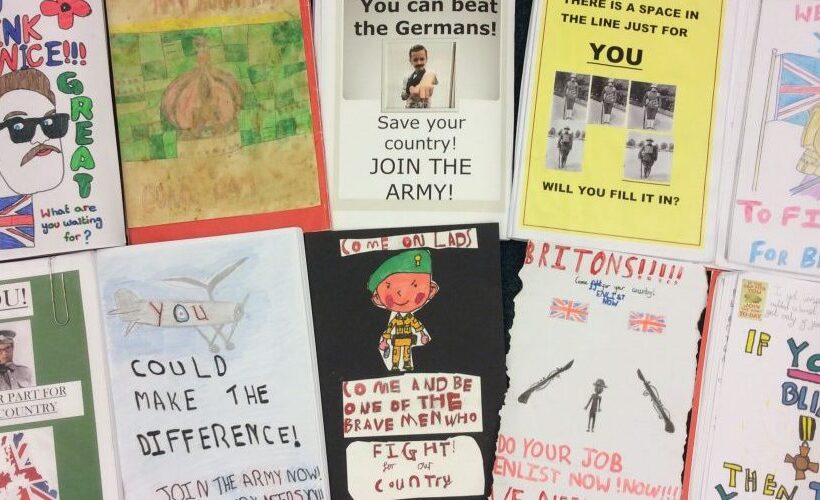 NK
NICE!!!
GREAT
What are
you waiting
for?
You can beat
the Germans!
Save your
country!
JOIN THE
ARMY!
THERE IS A SPACE IN
THE LINE JUST FOR
YOU
WILL YOU FILL IT IN?
WE
TO FI
FOR B
OU!
R PART FOR
COUNTRY
YOU
COULD
MAKE THE
DIFFERENCE!
JOIN THE ARMY NOW!
COME ON LADS
COME AND BE
ONE OF THE
BRAVE MEN WHO
FIGHT!
for our
country
BRITONS!!!!!
Come for your country!
ENLIST
NOW
DO YOUR JOB
ENLIST NOW!NOW!!!
JOIN
TO-DAY
IF YO
BLI
THEN